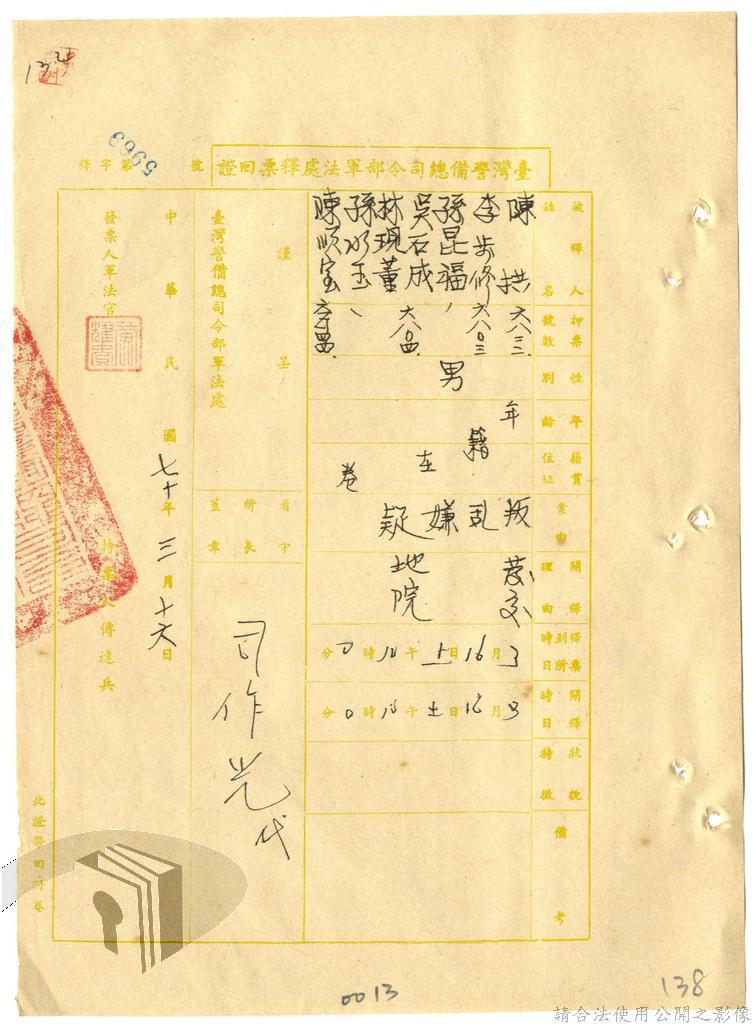 134
5969
臺灣警備總司令部軍法處釋票回證
字第 號
被釋人姓名
陳拱
李步修
孫昆福
吳石成
林現董
孫水玉
陳順宝
押票號數
六八三
六八〇三
六八〇四
性別
男
年齡
年
籍貫住址
籍
在
卷
案由
叛亂嫌疑
開釋理由
發交地院
釋票到所日時
3月16日上午10時0分
開釋日時
3月16日上午10時0分
狀貌特徵
備考
謹呈
臺灣警備總司令部軍法處
看守所長蓋章
司作光代
中華民國七十年三月十六日
發票人軍法官
持票人傳達兵
此證票回附卷
0013
138
請合法使用公開之影像